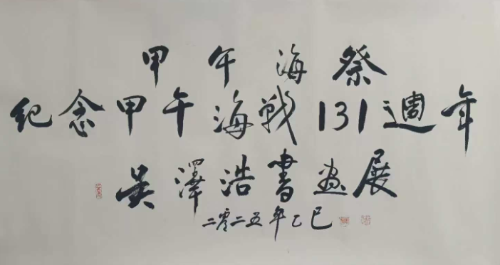 甲午海祭
纪念甲午海战131週年
吴澤浩書画展
二零二五年乙巳